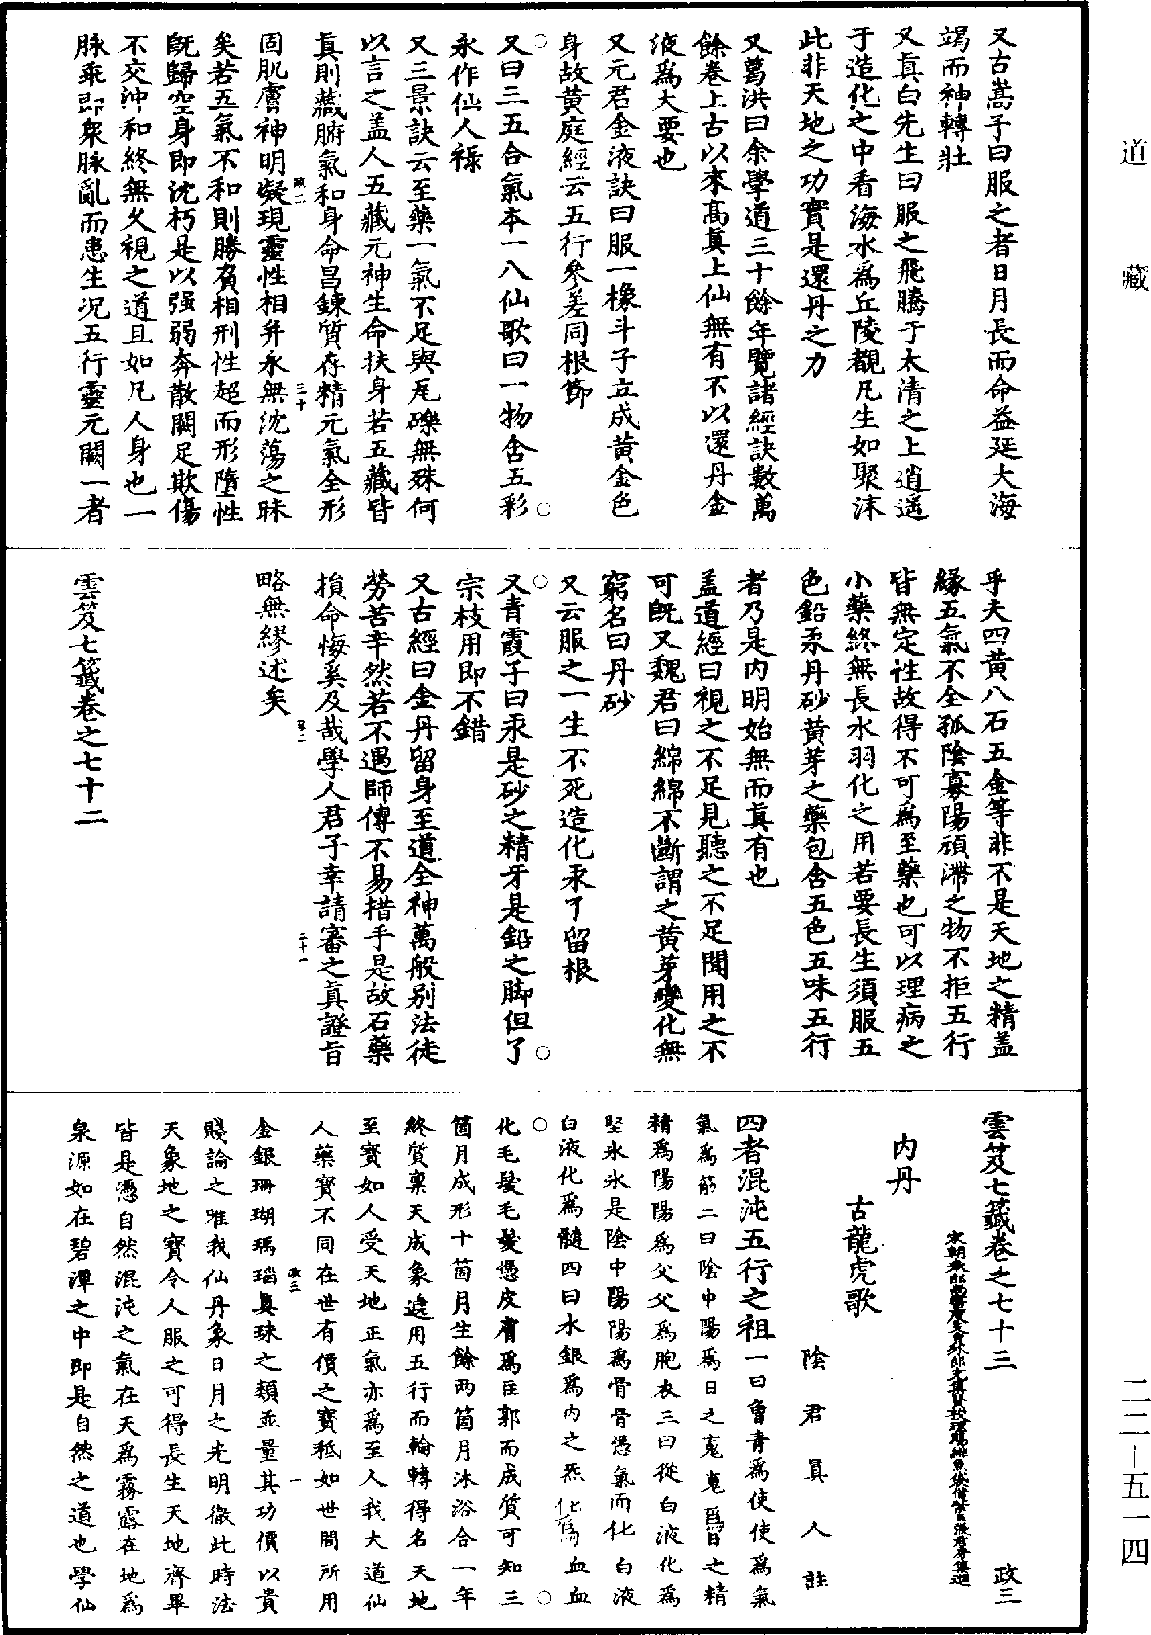 道藏
又古嵩子曰服之者日月長而命益延大海
竭而神轉壯
又真白先生曰服之飛騰于太清之上逍遥
于造化之中看海水爲丘陵覩凡生如聚沫
此非天地之功實是還丹之力
又葛洪曰余學道三十餘年覽諸經訣數萬
餘卷上古以來髙真上仙無有不以還丹金
液爲大要也
又元君金液訣曰服一橡斗子立成黄金色
身故黄庭經云五行叅差同根節
又曰三五合氣本一八仙歌曰一物含五彩
永作仙人禄
又三景訣云至藥一氣不足與瓦礫無殊何
以言之盖人五藏元神生命扶身若五藏皆
真則藏腑氣和身命昌鍊質存精元氣全形
固肌膚神明凝現靈性相弁永無沈蕩之昧
矣若五氣不和則勝負相刑性超而形隳性
旣歸空身即沈朽是以强弱奔散闕足欺傷
不交沖和終無久視之道且如凡人身也一
脉乖即衆脉亂而患生况五行靈元闕一者
乎夫四黄八石五金等非不是天地之精盖
緣五氣不全孤陰寡陽頑滯之物不拒五行
皆無定性故得不可爲至藥也可以理病之
小藥終無長水羽化之用若要長生須服五
色鉛汞丹砂黄芽之藥包含五色五味五行
者乃是内明始無而真有也
盖道經曰視之不足見聽之不足聞用之不
可旣又魏君曰綿綿不斷謂之黄芽變化無
窮名曰丹砂
又云服之一生不死造化汞了留根
又青霞子曰汞是砂之精牙是鉛之脚但了
宗枝用即不錯
又古經曰金丹留身至道全神萬般别法徒
勞苦辛然若不遇師傳不易措手是故石藥
損命悔奚及哉學人君子幸請審之真證旨
略無繆述矣
雲笈七籤卷之七十二
雲笈七籤卷之七十三
政三
内丹
古龍虎歌
陰君真人註
四者混沌五行之祖一曰曾青爲使使爲氣
氣爲筋二曰陰中陽爲日之䰟䰟爲日之精
精爲陽陽爲父父爲胞衣三曰從白液化爲
堅氷氷是陰中陽陽爲骨骨憑氣而化白液
白液化爲髓四曰水銀爲内之炁化爲血血
化毛髮毛髮憑皮膚爲垣郭而成質可知三
箇月成形十箇月生餘兩箇月沐浴合一年
終質稟天成象遞用五行而輪轉得名天地
至寳如人受天地正氣亦爲至人我大道仙
人藥寳不同在世有價之寳秪如世間所用
金銀珊瑚瑪瑙真珠之類並量其功價以貴
賤論之唯我仙丹象日月之光明徹此時法
天象地之寳令人服之可得長生天地齊畢
皆是憑自然混沌之氣在天爲霧露在地爲
泉源如在碧潭之中即是自然之道也學仙
二二—五一四